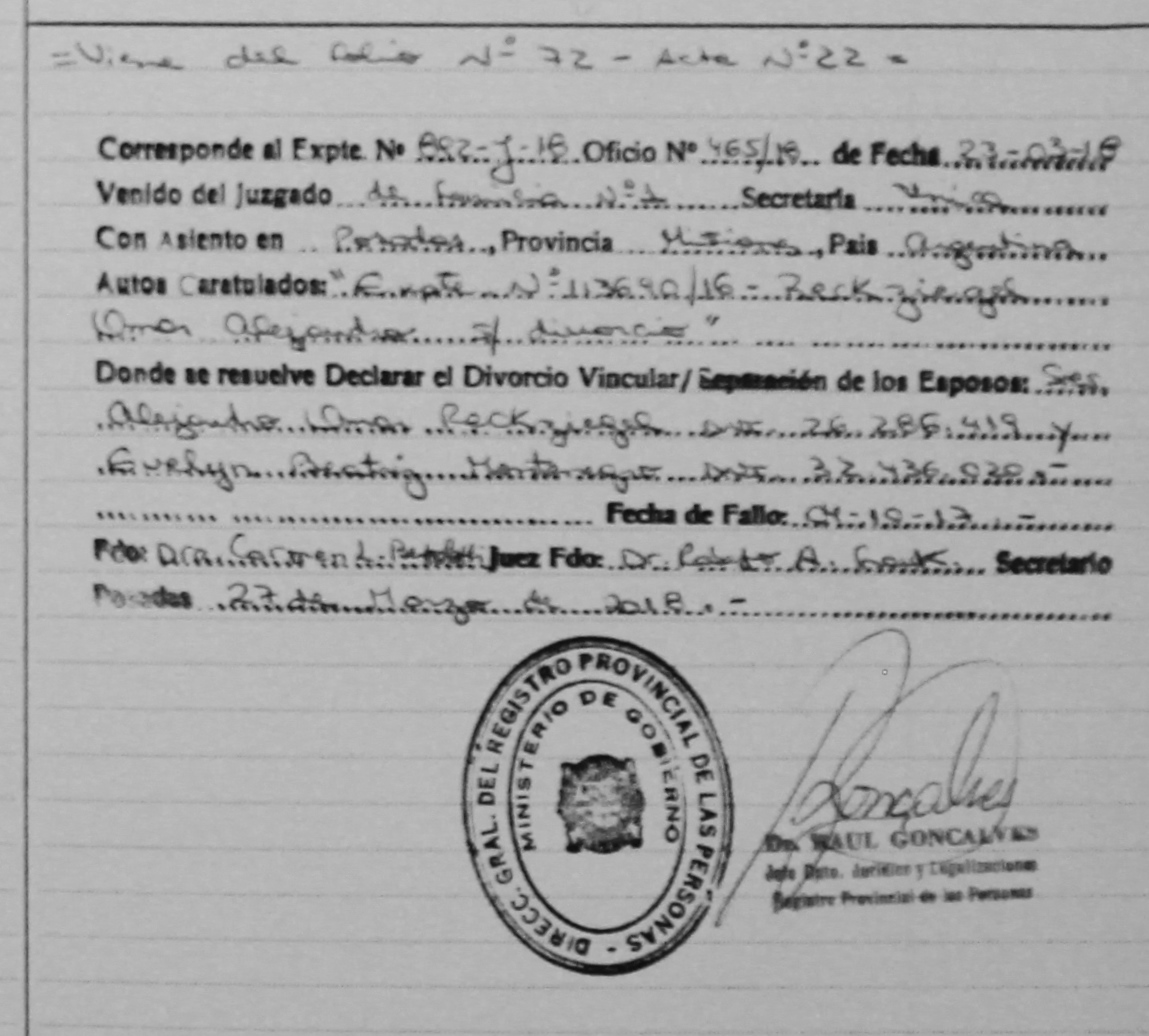 = Viene del folio Nº 72 - Acta Nº 22 =
Corresponde al Expte. Nº 892-J-18 Oficio Nº 465/18 de Fecha 23-03-18
Venido del Juzgado de Familia Nº 1 Secretaria Unica
Con Asiento en Posadas, Provincia Misiones, Pais Argentina
Autos Caratulados: "Expte Nº 113690/16 - Reckziegel
Omar Alejandro s/ divorcio"
Donde se resuelve Declarar el Divorcio Vincular/ Separación de los Esposos: Sres.
Alejandro Omar Reckziegel DNI 26.286.419 y
Evelyn Beatriz DNI 32.436.030.-
Fecha de Fallo: 04-10-17.-
Fdo: Dra. Carmen L. Juez Fdo: Dr. A. Secretario
Posadas 27 de Marzo de 2018.-
DIRECC. GRAL. DEL REGISTRO PROVINCIAL DE LAS PERSONAS -
MINISTERIO DE GOBIERNO
Dr. RAUL GONCALVES
Jefe Dpto. Jurídico y Legalizaciones
Registro Provincial de las Personas